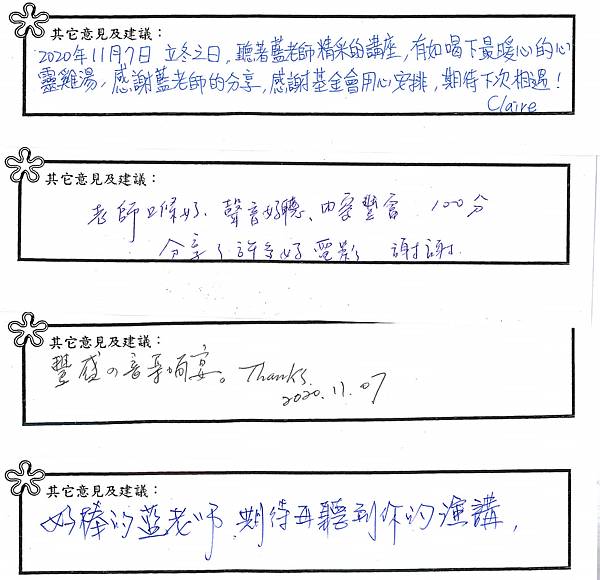 其它意見及建議：
2020年11月7日 立冬之日，聽著藍老師精采的講座，有如喝下最暖心的心
靈雞湯，感謝藍老師的分享，感謝基金會用心安排，期待下次相遇！
Claire
其它意見及建議：
老師口條好、聲音好聽、內容豐富 100分
分享了許多好電影 謝謝.
其它意見及建議：
豐盛の音樂饗宴。Thanks.
2020.11.07
其它意見及建議：
好棒的藍老师,期待再聽到你的演講,